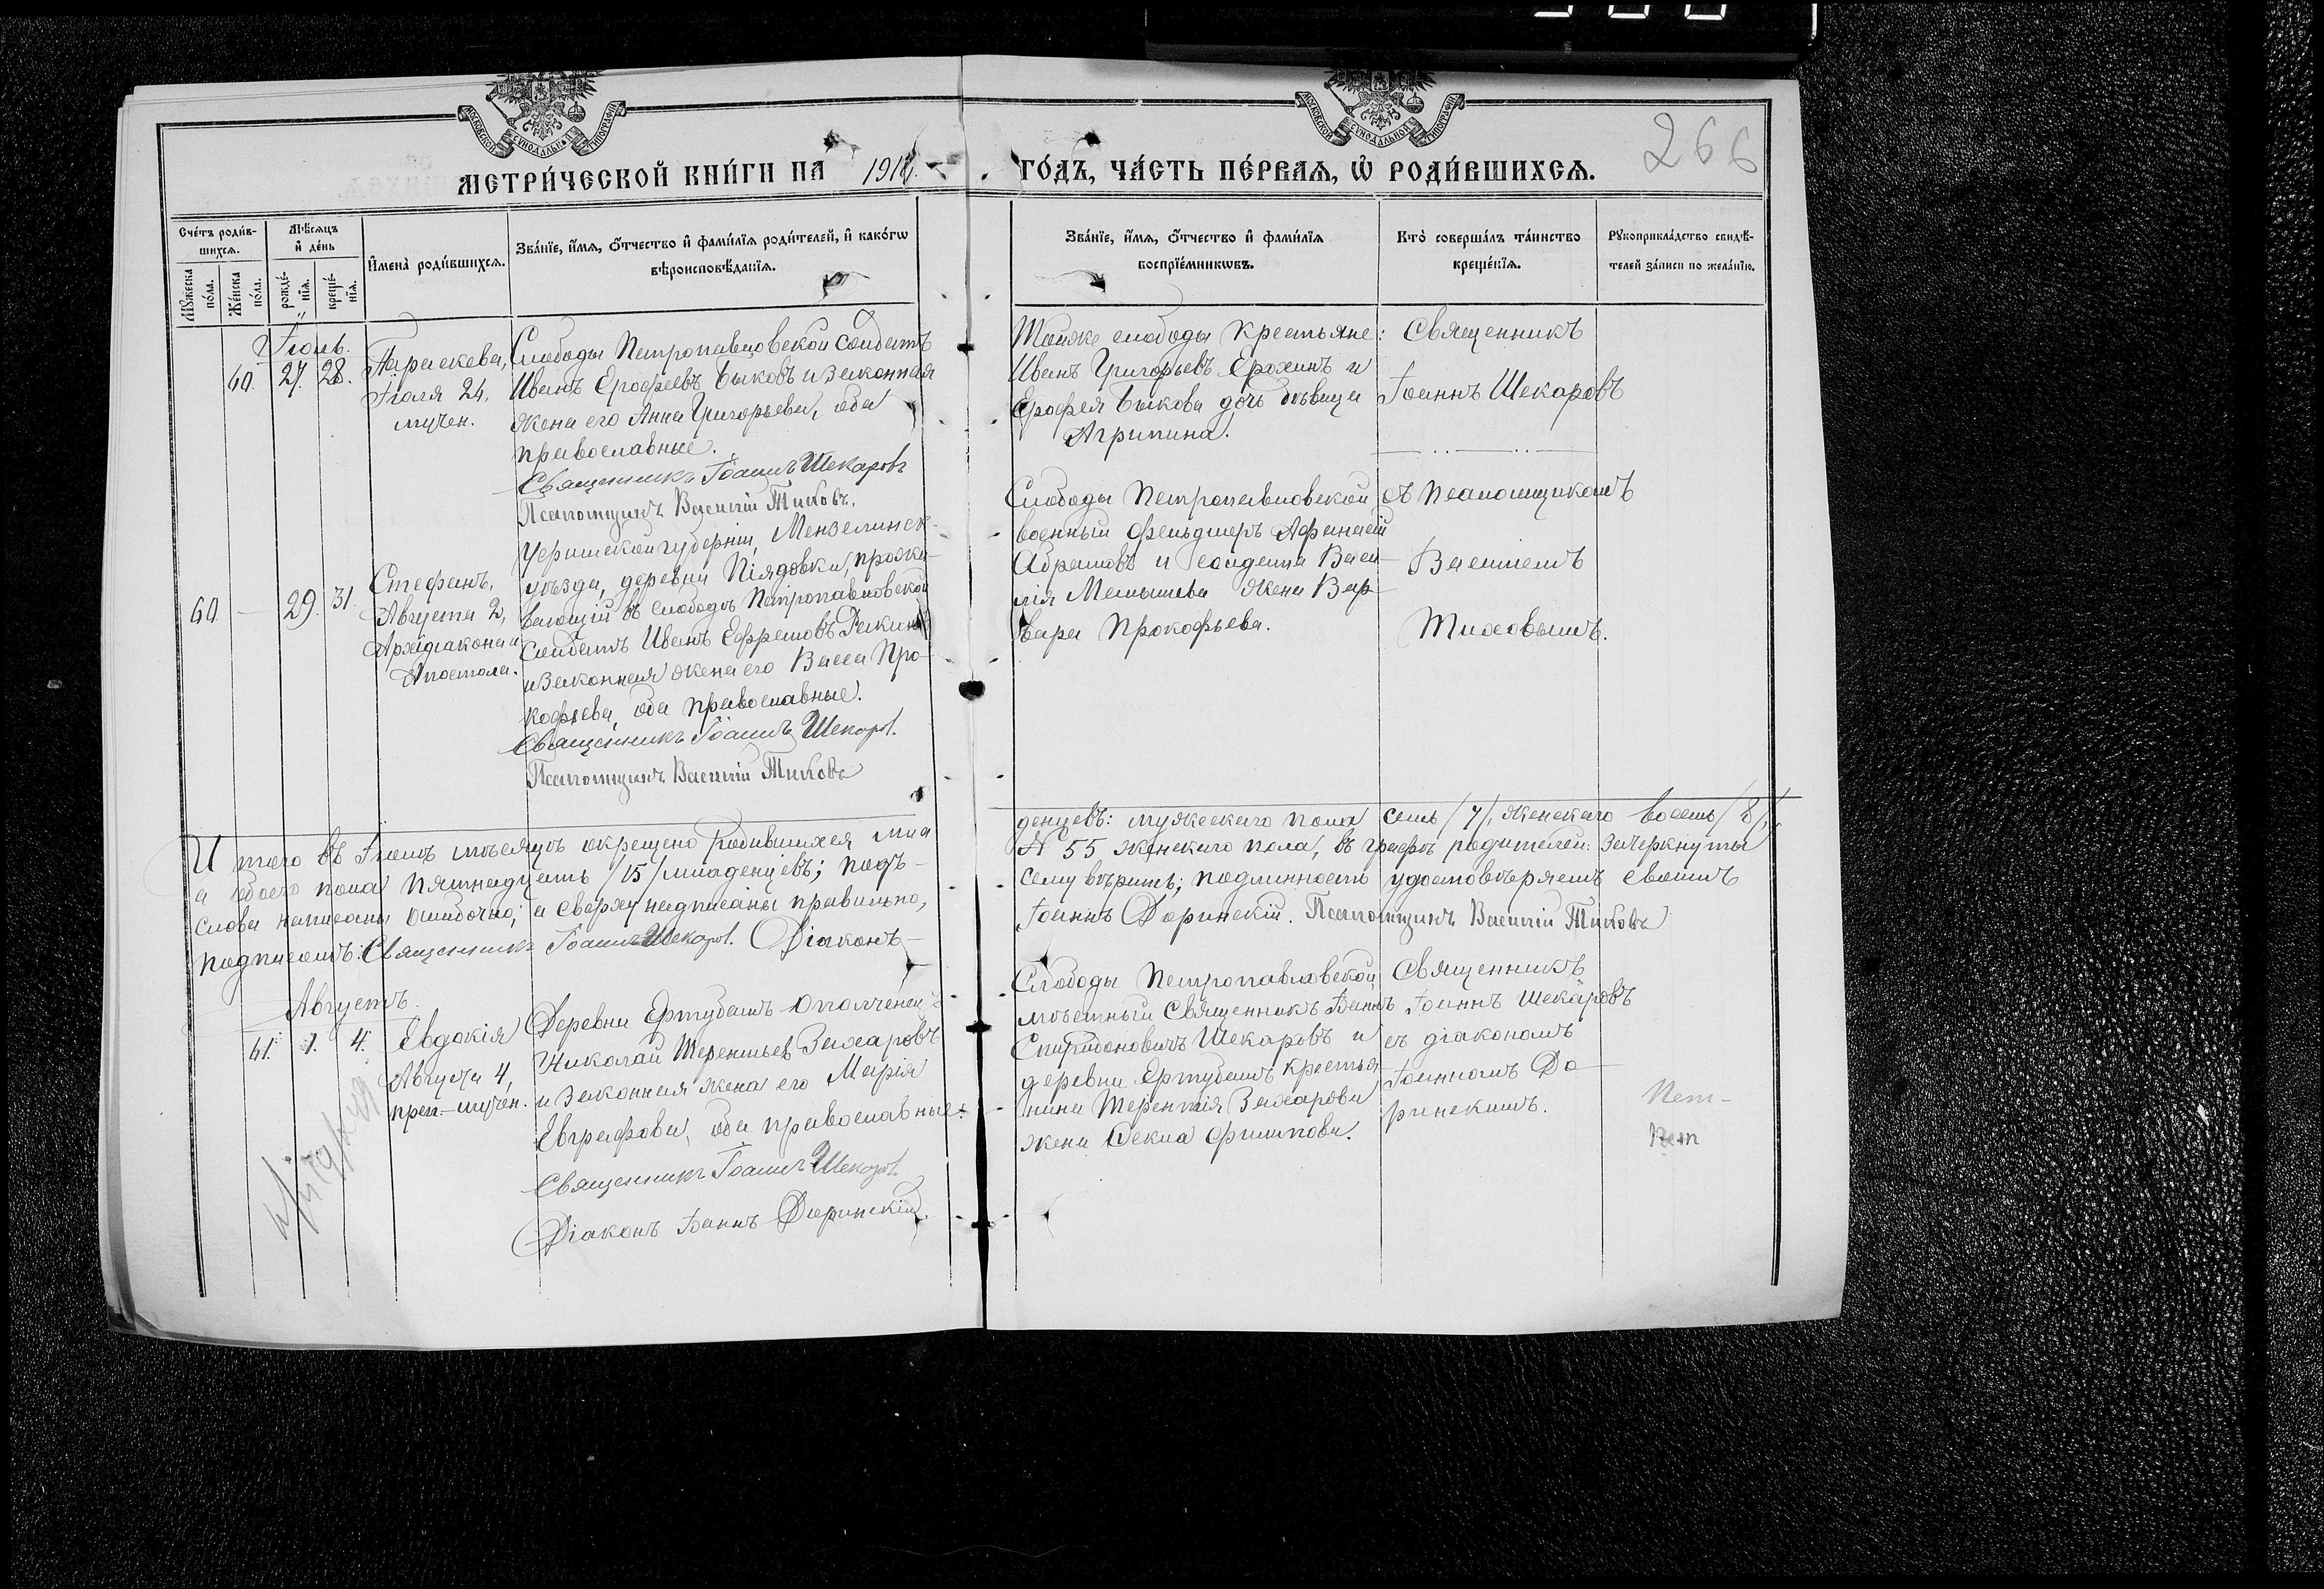 266
МОСКОВСКОЙ СѴНОДАЛЬНОЙ ТИПОГРАФІИ
МЕТРИ́ЧЕСКОЙ КНИ́ГИ НА
МОСКОВСКОЙ СѴНОДАЛЬНОЙ ТИПОГРАФІИ
ГО́ДЪ, ЧА́СТЬ ПЕ́РВАѦ, Ѡ҆ РОДИ́ВШИХСѦ.
Сче́тъ роди́в-
шихсѧ.
Мꙋ́жеска по́ла.
Же́нска по́ла.
Мѣ́сѧцъ
и҆ де́нь
рожде́-
нїѧ.
креще́-
нїѧ.
И҆мена̀ роди́вшихсѧ.
Зва́нїе, и҆́мѧ, ѻ҆́тчество и҆ фами́лїѧ роди́телей, и҆ како́гѡ
вѣроисповѣ́данїѧ.
Зва́нїе, и҆́мѧ, ѻ҆́тчество и҆ фами́лїѧ
воспрїе́мникѡвъ.
Кто̀ соверша́лъ та́инство
креще́нїѧ.
Рꙋкоприкла́дство свидѣ́-
телей за́писи по жела́нїю.
Іюль.
60. 27. 28.
Параскева,
Іюля 24,
мучен.
Слободы Петропавловской солдатъ
Иванъ Ерофеевъ Быковъ и законная
жена его Анна Григорьева, оба
православные.
Священникъ Іоаннъ Шекаровъ
Псаломщикъ Василій Тиховъ.
Тойже слободы крестьяне:
Иванъ Григорьевъ Ерохинъ и
Ерофея Быкова дочь дѣвица
Агрипина.
Священникъ
Іоаннъ Шекаровъ
60 — 29. 31.
Стефанъ,
Августа 2,
Архидіакона и
Апостола.
Уфимской губерніи, Мензелинск-
уѣзда, деревни Пілядовки, прожи-
вающій въ слободѣ Петропавловской
Солдатъ Иванъ Ефремовъ
и законная жена его Васса Про-
кофьева, оба православные.
Священникъ Іоаннъ Шекаров.
Псаломщикъ Василій Тиховъ
Слободы Петропавловской
военный фельдшеръ Афанасій
Абрамовъ и солдата Васи-
лія жена Вар-
вара Прокофьева.
съ псаломщикомъ
Василіемъ
Тиховымъ.
Итого въ Іюлѣ мѣсяцѣ окрещено родившихся мла
денцевъ: мужескаго пола семь /7/, женскаго восемь /8/,
а обоего пола пятнадцать /15/ младенцевъ; подъ-
№ 55 женскаго пола, въ графѣ родителей: зачеркнуты
слова написаны ошибочно, а сверху надписаны правильно,
сему вѣрить; подлинность удостовѣряемъ своимъ
подписомъ: Священникъ Іоаннъ Шекаров. Діаконъ-
Іоаннъ Доринскій. Псаломщикъ Василій Тиховъ
Августъ.
61. 1. 4.
Евдокія
Августа 4,
преп-мучен.
Деревни Ертубашъ ополченецъ
Николай Терентьев Захаровъ
и законная жена его Марія
Евграфова, оба православные.
Священникъ Іоаннъ Шекаров.
Діаконъ Іоаннъ Доринскій.
Слободы Петропавловской
мѣстный Священникъ Іоаннъ
Спиридоновичъ Шекаровъ и
деревни Ертубашъ крестья-
нина Терентія Захарова
жена Фекла Филипова.
Священникъ
Іоаннъ Шекаровъ
съ діакономъ
Іоанномъ До-
ринскимъ.